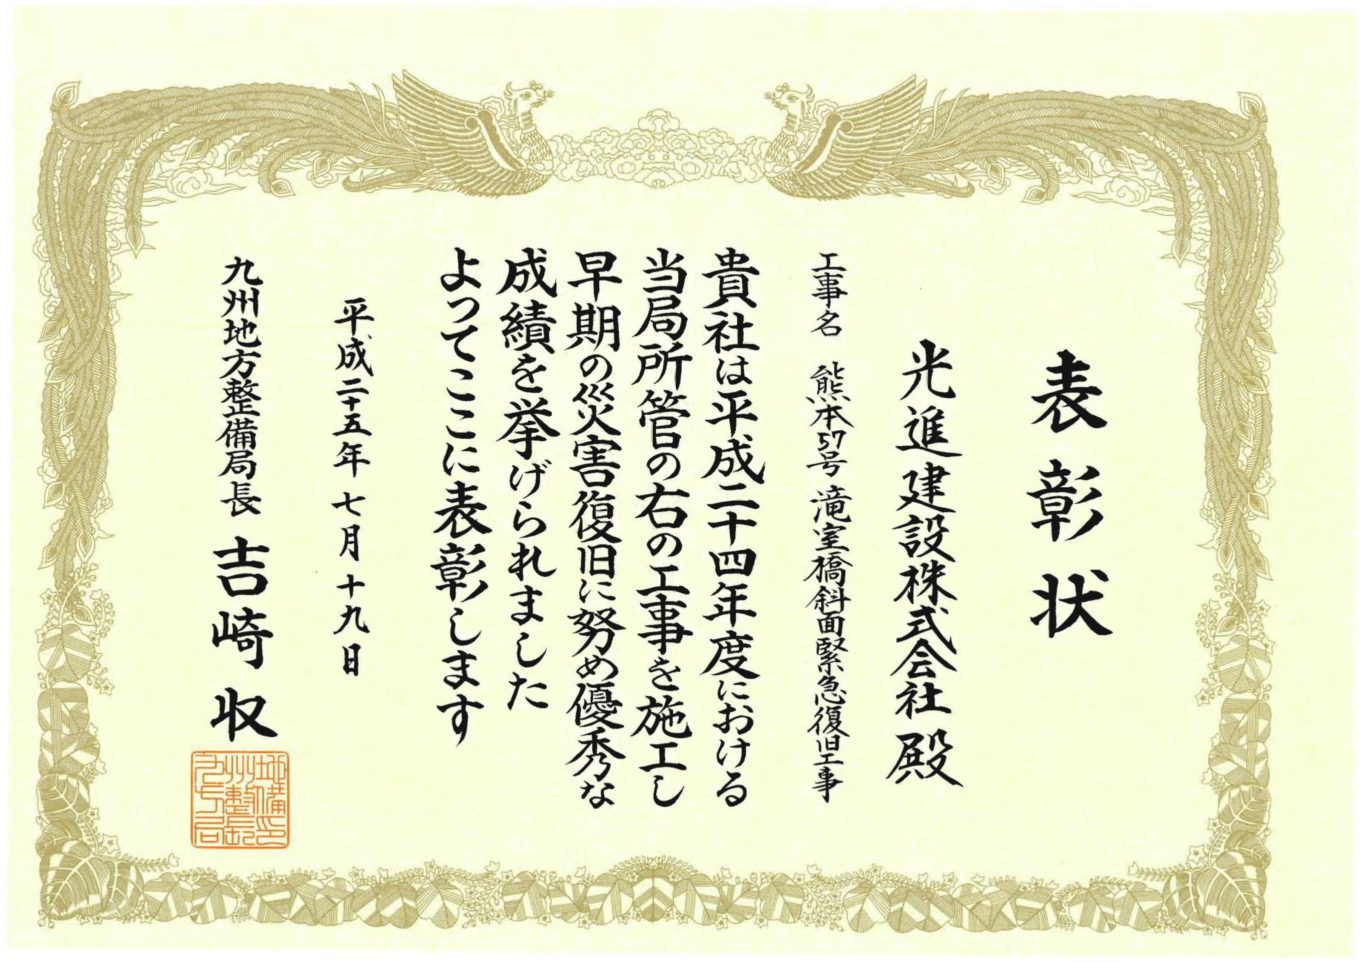 表彰状
光進建設株式会社 殿
工事名 熊本57号 滝室橋斜面緊急復旧工事
貴社は平成二十四年度における
当局所管の右の工事を施工し
早期の災害復旧に努め優秀な
成績を挙げられました
よってここに表彰します
平成二十五年七月十九日
九州地方整備局長 吉崎収